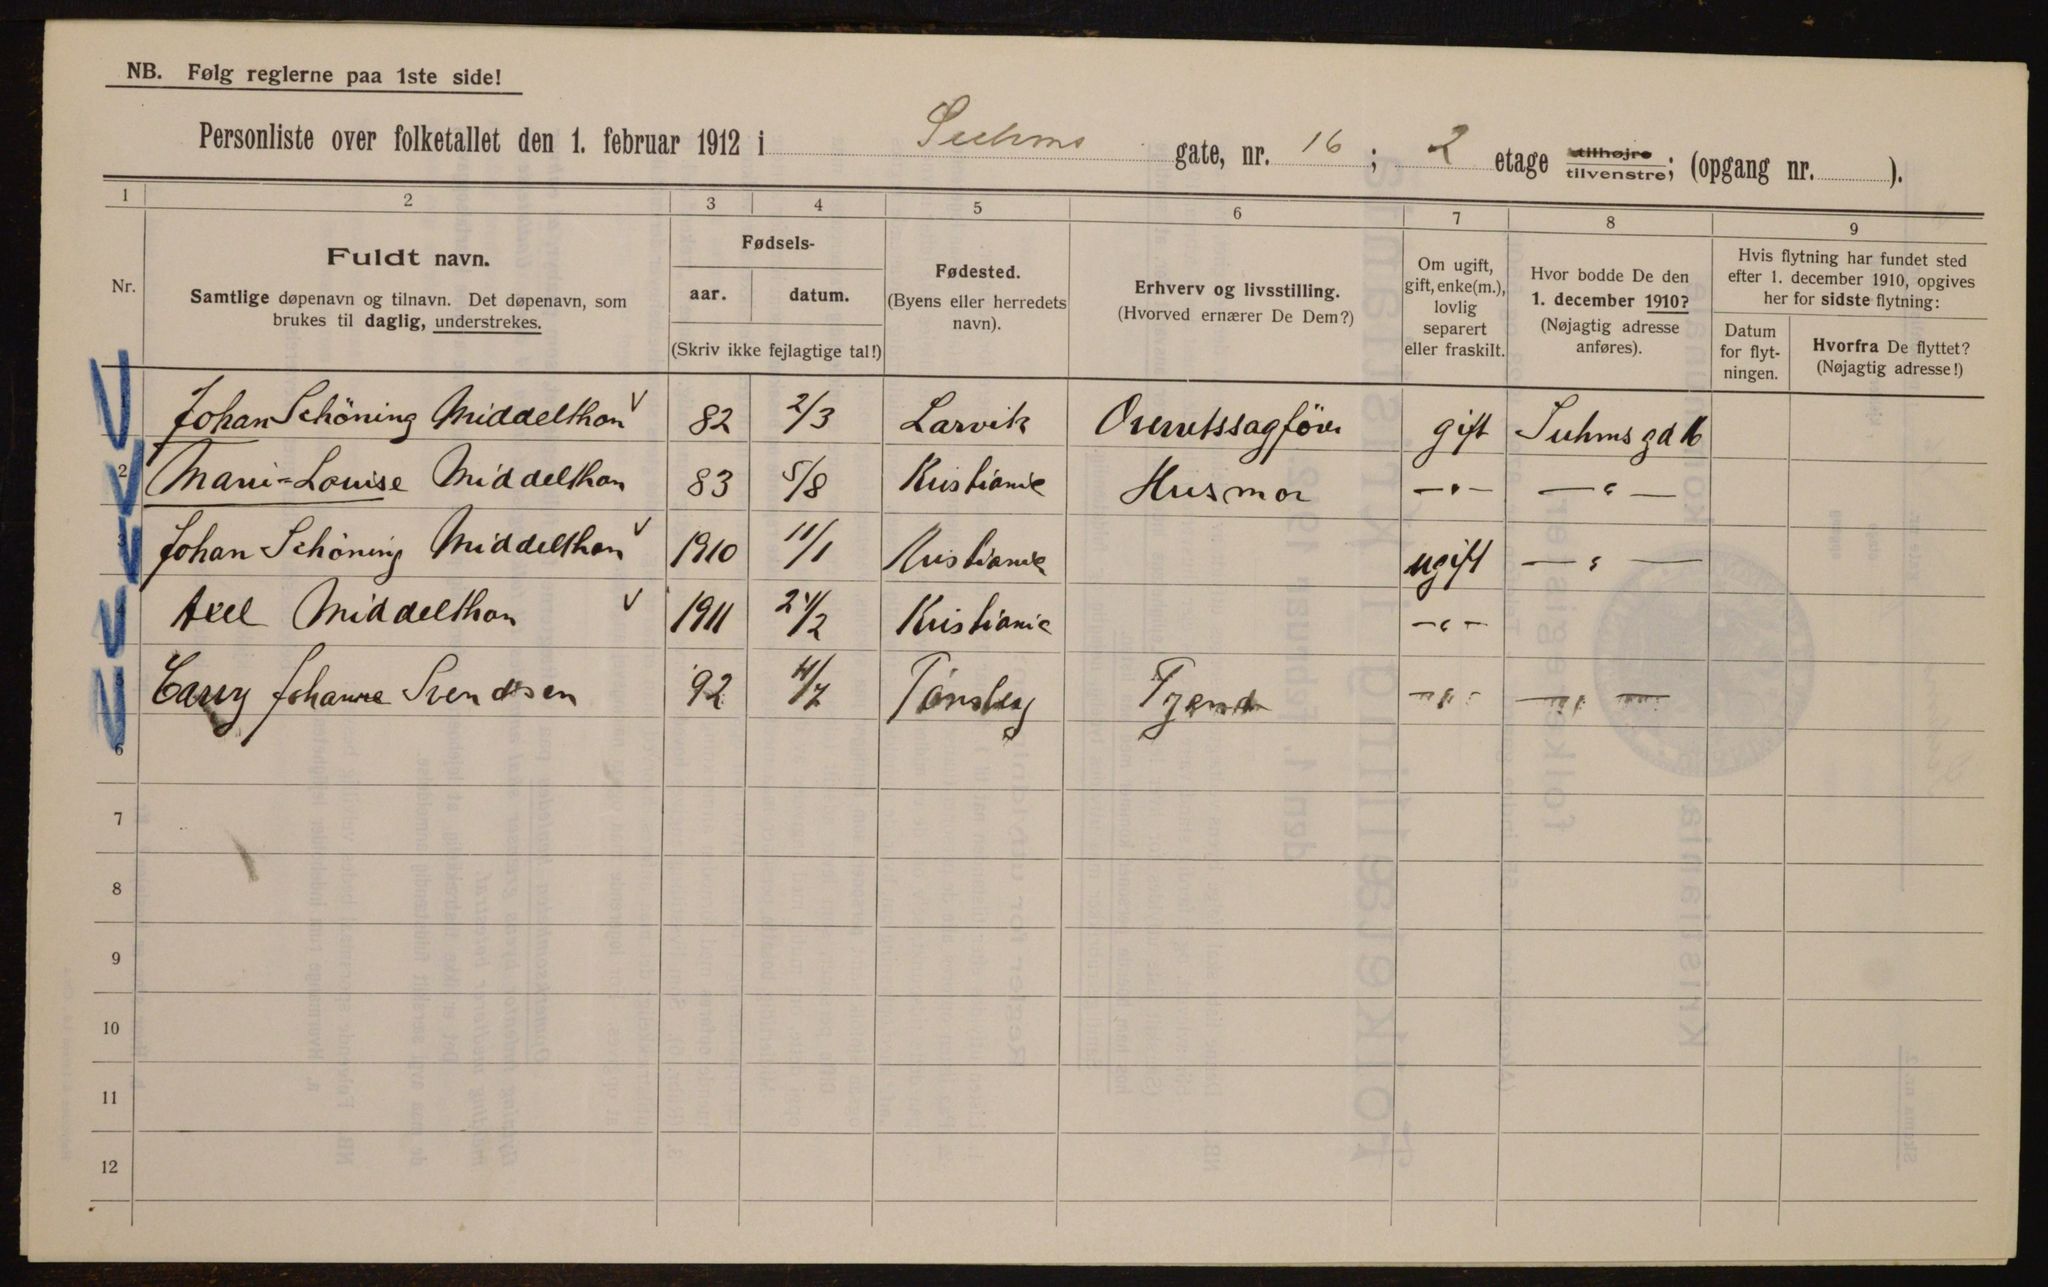 NB. Følg reglerne paa 1ste side!
Personliste over folketallet den 1. februar 1912 i Suhms gate, nr. 16 ; 2 etage tilhøjre tilvenstre; (opgang nr. ).
1 2 3 4 5 6 7 8 9
Nr.
Fuldt navn.
Samtlige døpenavn og tilnavn. Det døpenavn, som
brukes til daglig, understrekes.
Fødsels-
aar. datum.
(Skriv ikke fejlagtige tal!)
Fødested.
(Byens eller herredets
navn).
Erhverv og livsstilling.
(Hvorved ernærer De Dem?)
Om ugift,
gift, enke(m.),
lovlig
separert
eller fraskilt.
Hvor bodde De den
1. december 1910?
(Nøjagtig adresse
anføres).
Hvis flytning har fundet sted
efter 1. december 1910, opgives
her for sidste flytning:
Datum
for flyt-
ningen.
Hvorfra De flyttet?
(Nøjagtig adresse!)
Johan Schöning Middelthon 82 2/3 Larvik Overretssagförer gift Suhms gd 16
2 Marie-Louise Middelthon 83 5/8 Kristiania Husmor —"— —"—
3 Johan Schöning Middelthon 1910 11/1 Kristiania ugift —"—
4 Axel Middelthon 1911 24/2 Kristiania —"—
5 Johanne Svendsen 92 4/7 Tønsberg —"— —"—
6
7
8
9
10
11
12